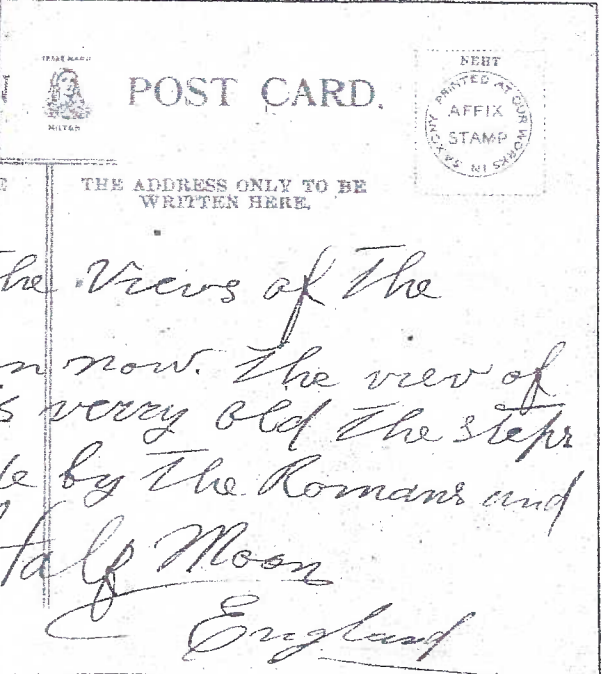 TRADE MARK
MILTON
POST CARD.
SEHT
PRINTED AT OUR WORKS IN SAXONY
AFFIX
STAMP
THE ADDRESS ONLY TO BE
WRITTEN HERE.
the Views of The
n now. The view of
s verry old The steps
de by The Romans and
Half Moon
England